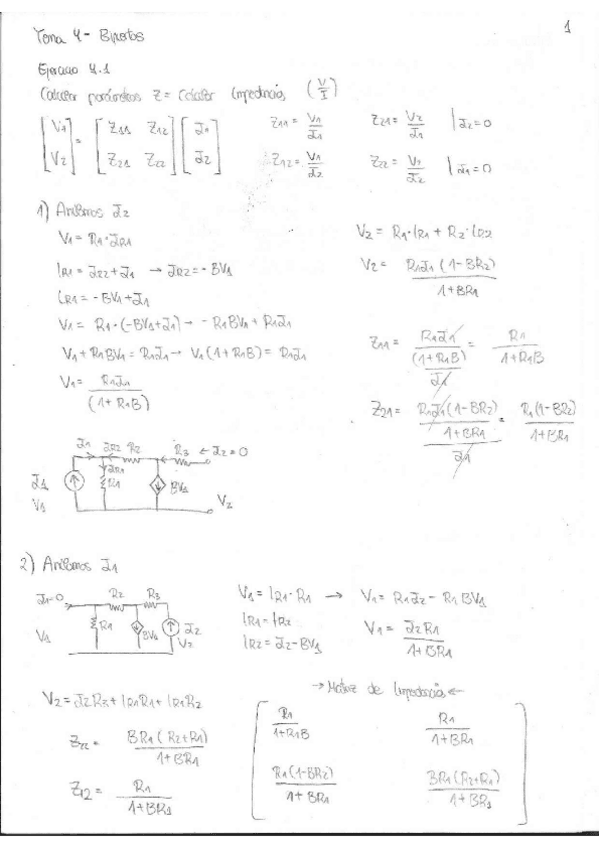 1
Tema 4- Bipuertos
Ejercicio 4.1
Calcular parámetros Z = Calcular Impedancias (V/I)
[V1 V2] = [Z11 Z12 Z21 Z22] [I1 I2]
Z11 = V1/I1 Z21 = V2/I1 | I2=0
Z12 = V1/I2 Z22 = V2/I2 | I1=0
1) Anulamos I2
V1 = R1·IR1
IR1 = IR2+I1 → IR2 = -BV1
IR1 = -BV1+I1
V1 = R1·(-BV1+I1) → -R1BV1 + R1I1
V1 + R1BV1 = R1I1 → V1(1+R1B) = R1I1
V1 = R1I1/(1+R1B)
V2 = R1·IR1 + R2·IR2
V2 = R1I1(1-BR2)/1+BR1
Z11 = R1I1/(1+R1B)/I1 = R1/1+R1B
Z21 = R1I1(1-BR2)/1+BR1/I1 = R1(1-BR2)/1+BR1
I1 IR2 R2 R3 ← I2=0
I1 IR1 R1 BV1
V1 V2
2) Anulamos I1
I1=0 R2 R3
R1 BV1 I2
V1 V2
V1 = IR1·R1 → V1 = R1I2 - R1BV1
IR1 = IR2
IR2 = I2-BV1
V1 = I2R1/1+BR1
V2 = I2R3 + IR1R1 + IR1R2
Z22 = BR1(R2+R1)/1+BR1
Z12 = R1/1+BR1
→ Matriz de Impedancias ←
R1/1+R1B R1/1+BR1
R1(1-BR2)/1+BR1 BR1(R2+R1)/1+BR1